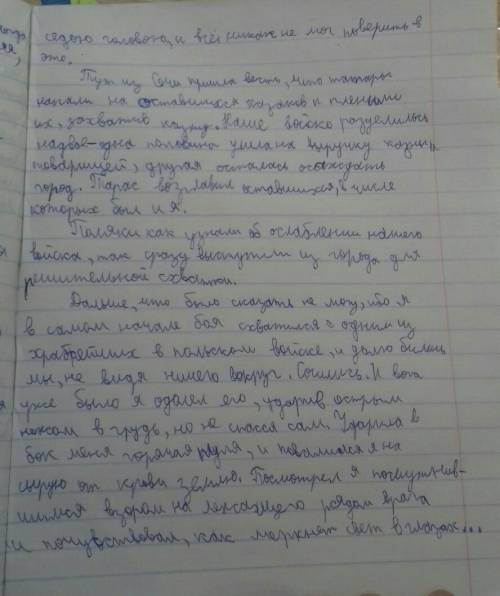 седою головою, и всё никак не мог поверить в
это.
Тут из Сечи пришла весть, что татары
напали на оставшихся казаков и пленили
их, захватив казну. Наше войско разделилось
надвое - одна половина ушла на выручку казны и
товарищей, другая осталась осаждать
город. Тарас возглавил оставшихся, в числе
которых был и я.
Поляки как узнали об ослаблении нашего
войска, так сразу выступили из города для
решительной схватки.
Дальше, что было сказать не могу, ибо я
в самом начале боя схватился с одним из
храбрейших в польском войске, и долго бились
мы, не видя ничего вокруг. Сошлись. И вот
уже было я одолел его, ударив острым
ножом в грудь, но не спасся сам. Ударила в
бок меня горячая пуля, и повалился я на
сырую от крови землю. Посмотрел я помутнев-
шимся взором на лежащего рядом врага
и почувствовал, как меркнет свет в глазах...